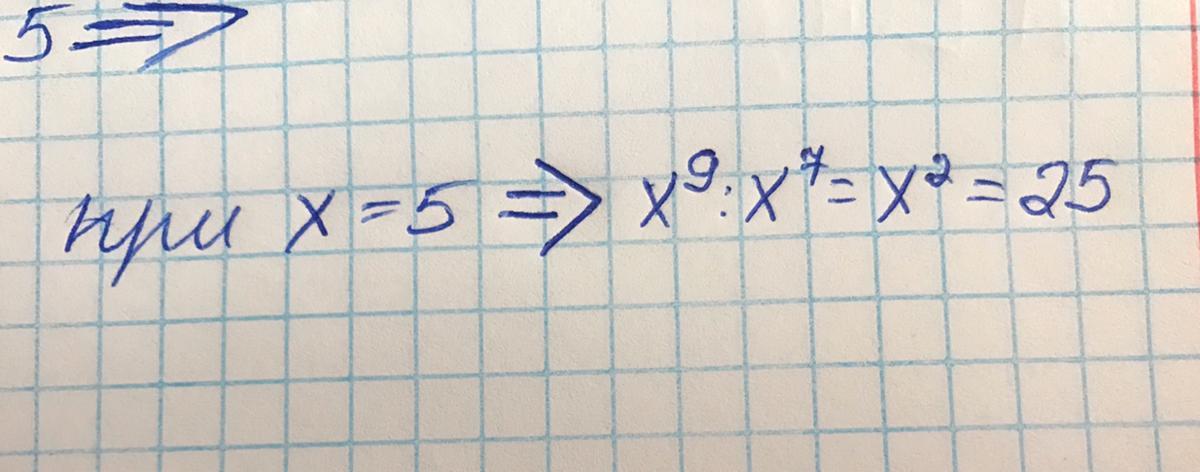 5 ⇒
при x = 5 ⇒ x⁹ : x⁷ = x² = 25